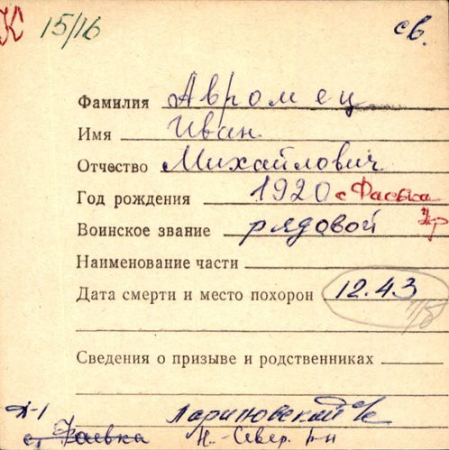 К 15/16 св.
Фамилия Авромец
Имя Иван
Отчество Михайлович
Год рождения 1920 с Фаевка
Воинское звание рядовой
Наименование части
Дата смерти и место похорон 12.43 п/б
Сведения о призыве и родственниках
Д-1 Лариновский с/с
ст Фаевка Н.-Север. р-н